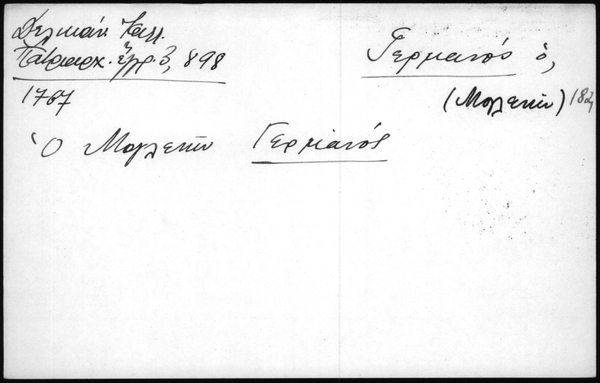 Δελικάν. Καλ.
Πατριαρχ. ἔγγρ. 3, 898
1767
Γερμανὸς ὁ,
(Μογλενῶν) 182
Ὁ Μογλενῶν Γερμανός